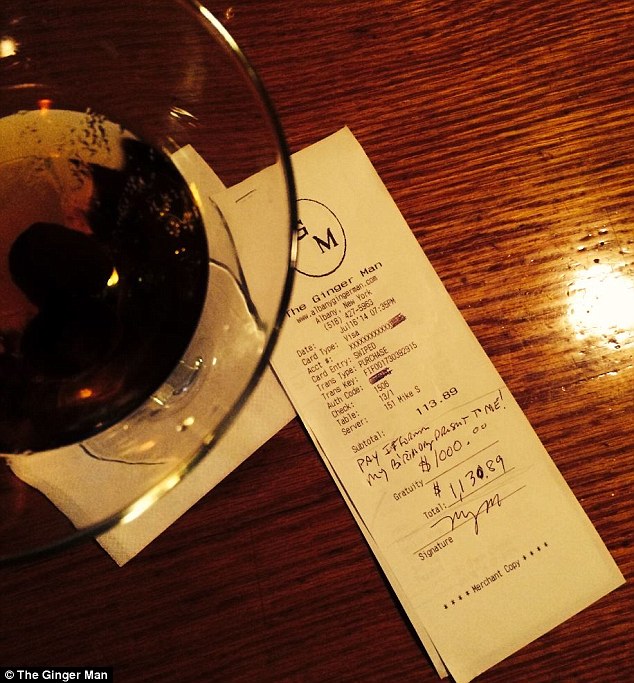 G M
The Ginger Man
www.albanygingerman.com
Albany, New York
(518) 427-5963
Date: Jul16'14 07:35PM
Card Type: Visa
Acct #: XXXXXXXXXX
Card Entry: SWIPED
Trans Type: PURCHASE
Trans Key: FIF001730392915
Auth Code:
Check: 1506
Table: 13/1
Server: 151 Mike S
Subtotal: 113.89
PAY IT FORWARD
MY BIRTHDAY PRESENT TO ME!
Gratuity $1000.00
Total: $1,130.89
Signature
**** Merchant Copy ****
© The Ginger Man